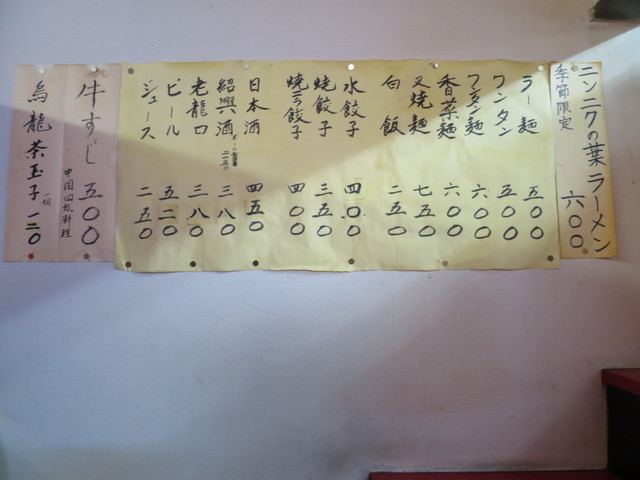 ニンニクの葉ラーメン 六〇〇
季節限定
ラー麺 五〇〇
ワンタン 五〇〇
ワンタン麺 六〇〇
香菜麺 六〇〇
叉焼麺 七五〇
白飯 二五〇
水餃子 四〇〇
焼餃子 三五〇
焼ラ餃子 四〇〇
日本酒 四五〇
紹興酒 三八〇
老龍口 三八〇
ビール 五二〇
ジュース 二五〇
牛すじ 五〇〇
中国回族料理
烏龍茶玉子 一個 一二〇